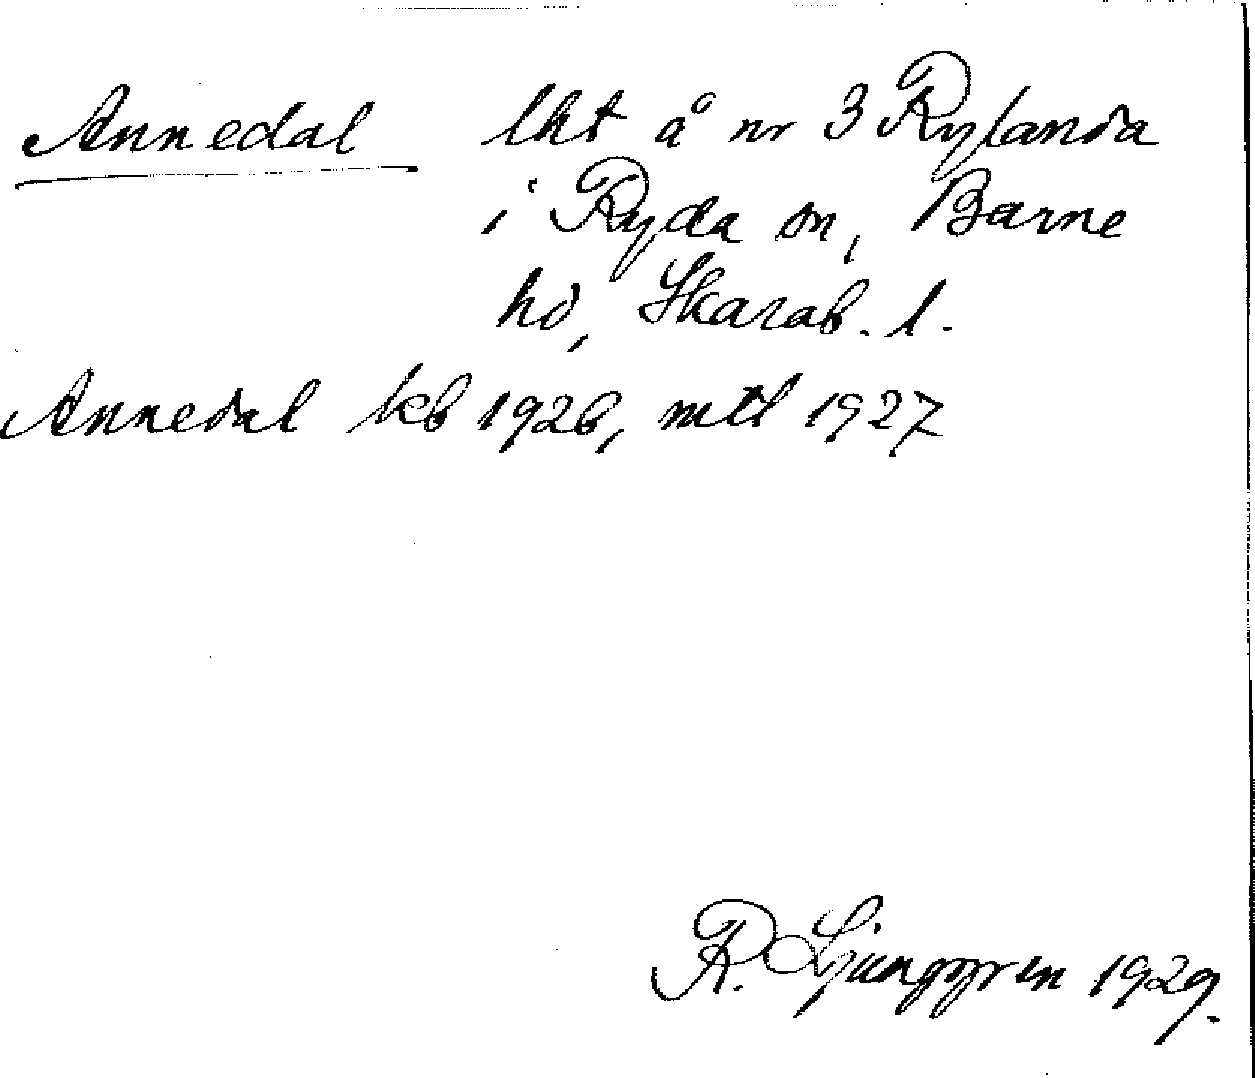 Annedal lht å nr 3 Rylanda
i Ryda sn, Barne
hd, Skarab. l.
Annedal kb 1926, mtl 1927
R. Ljunggren 1929.